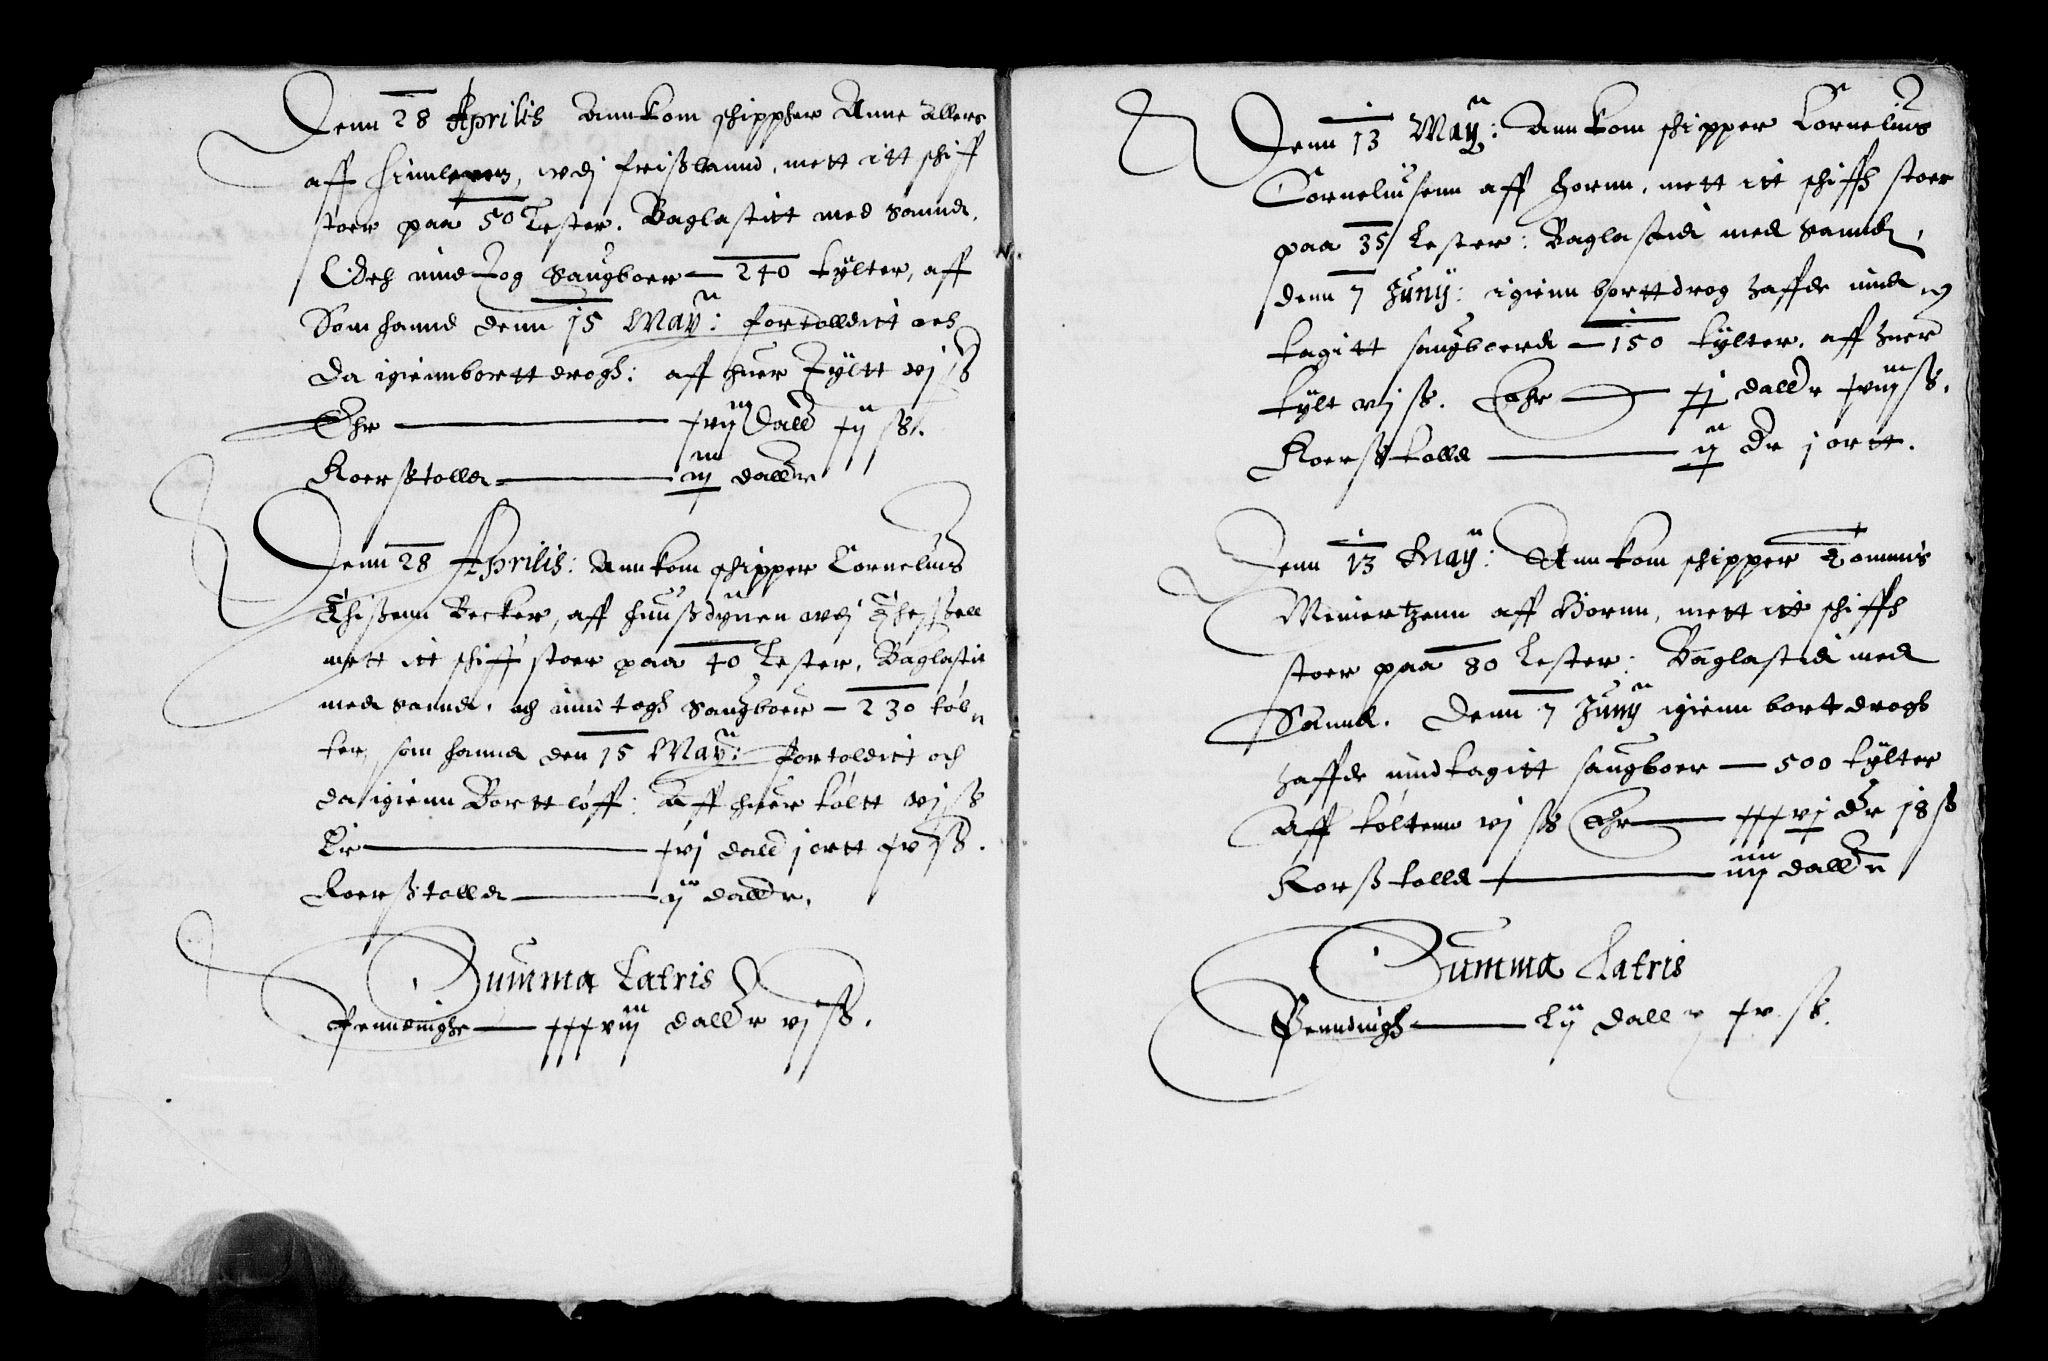 Denn 28 Aprilis Annkom schippher Anne allers
aff , wdj frißlannd, mett itt schiff
stoer paa 50 Lester. Baglastitt med sannd,
Och indtog saugboer — 240 tylter, aff
Som hannd denn 15 May: fortollditt och
da igiennbortt drogh: aff huer Tyltt vj ß
Ehr — xvij dall xij ß.
Koerßtolld — iij dallr
Denn 28 Aprilis: Annkom schipper Cornelius
Thißenn Becker, aff wdj Theyßell
mett itt schiff stoer paa 40 Lester, Baglastit
med sannd, och inndtogh saugboer — 230 tøl
ter, som hannd den 15 May: fortolditt och
da igienn Bortt løff: Aff huer tøltt vj ß
Er — xvj dall j ortt xv ß.
Koerßtolld — ij dalldr.
Summa Latris
Penndinghe — xxxviij dalldr vj ß.
2
Denn 13 May: Annkom schipper Cornelius
Corneliusenn aff Hornn, mett itt schiffh stoer
paa 35 Lester: Baglastid med sannd,
denn 7 Juny: igienn bortt drog haffde ind
tagitt saugboerd — 150 tylter, aff huer
tylt vj ß. Ehr — xj dalldr xviij ß.
Koerßtolld — ij dr j ortt.
Denn 13 May: Annkom schipper Tommis
Meinertzenn aff Hornn, mett itt schiffh
stoer paa 80 Lester: Baglastid med
Sannd. Denn 7 Juny igienn bort drogh
haffde indtagitt saugboer — 500 tylter
Aff tøltenn vj ß Ehr — xxxvj dr 18 ß
Korßtolld — iiij dalldr
Summa Latris
Penndingh — Lij dallr xv ß.